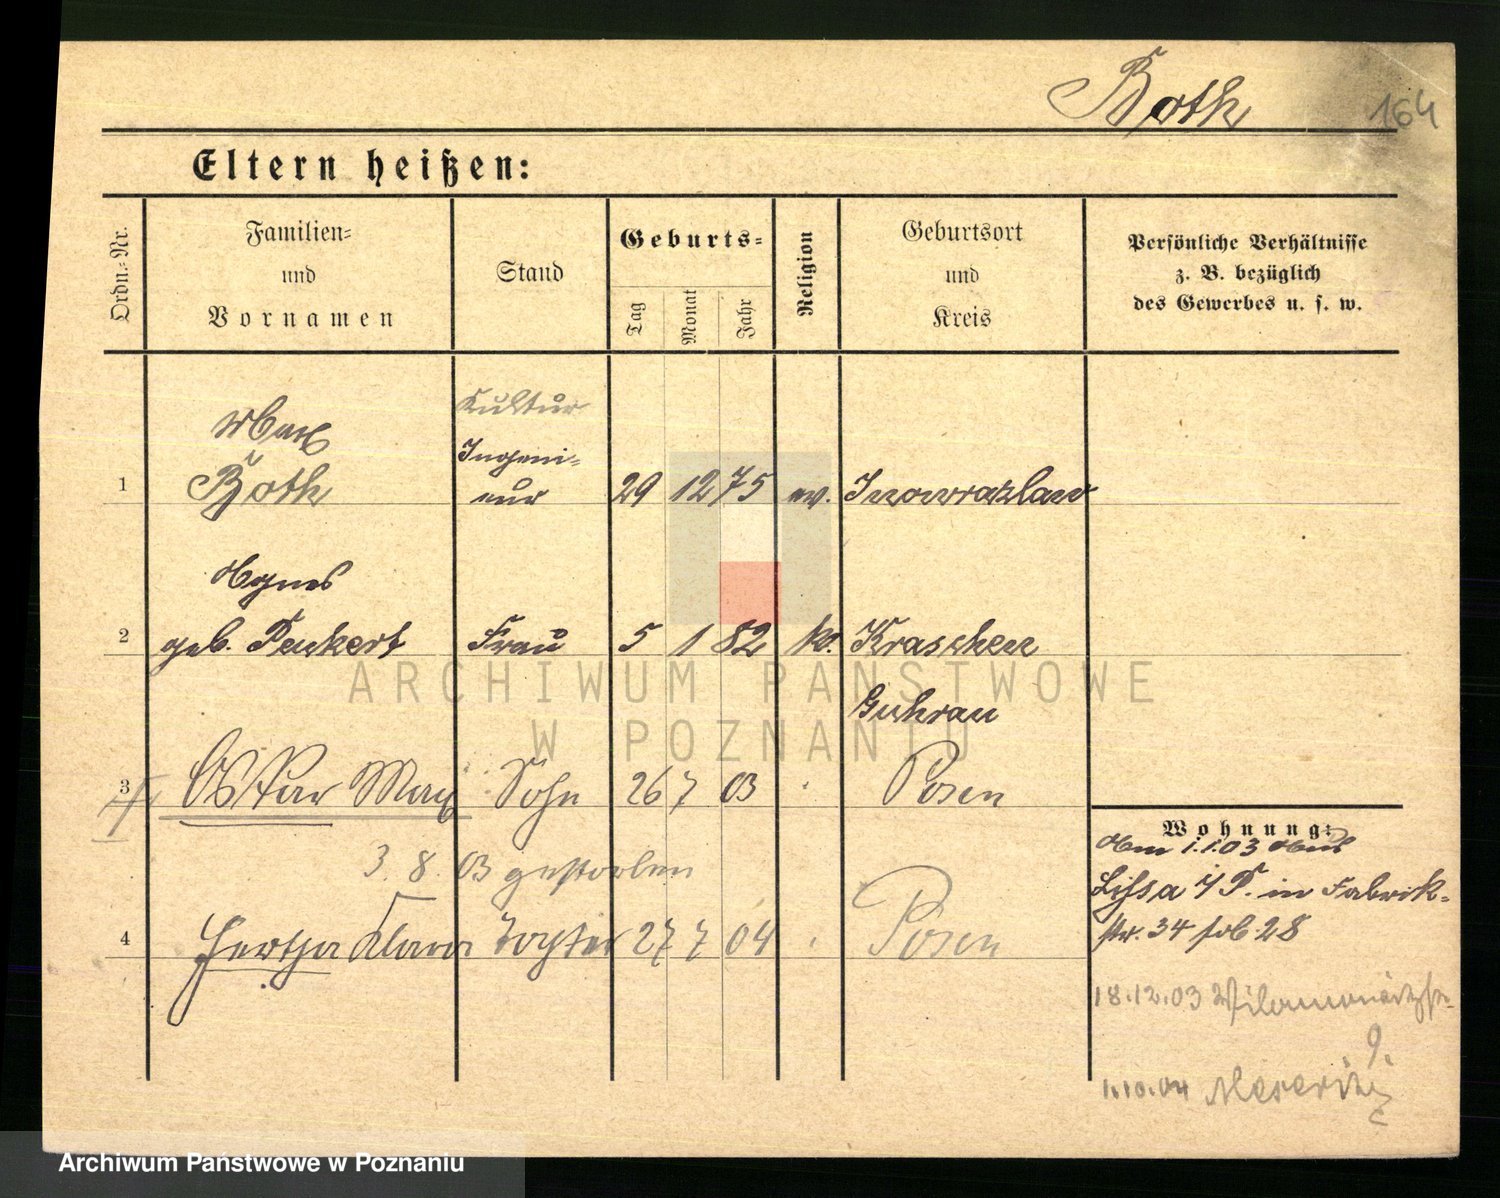 Both
164
Eltern heißen:
Ordn.-Nr.
Familien-
und
Vornamen
Stand
Geburts-
Tag
Monat
Jahr
Religion
Geburtsort
und
Kreis
Persönliche Verhältnisse
z. B. bezüglich
des Gewerbes u. s. w.
Max
Kultur
Ingeni-
1 Both eur 29 12 75 ev. Inowrazlaw
Agnes
2 geb. Penkert Frau 5 1 82 k. Kraschen
Guhrau
3 Oskar Max Sohn 26 7 03 Posen
3. 8. 03 gestorben
4 Hertha Klara Tochter 27 7 04 Posen
Wohnung:
Am 1.1.03 aus
Lissa i/P. in Fabrik-
str. 34 28
18.12.03
9.
1.10.04 Meseritz
ARCHIWUM PAŃSTWOWE
W POZNANIU
Archiwum Państwowe w Poznaniu